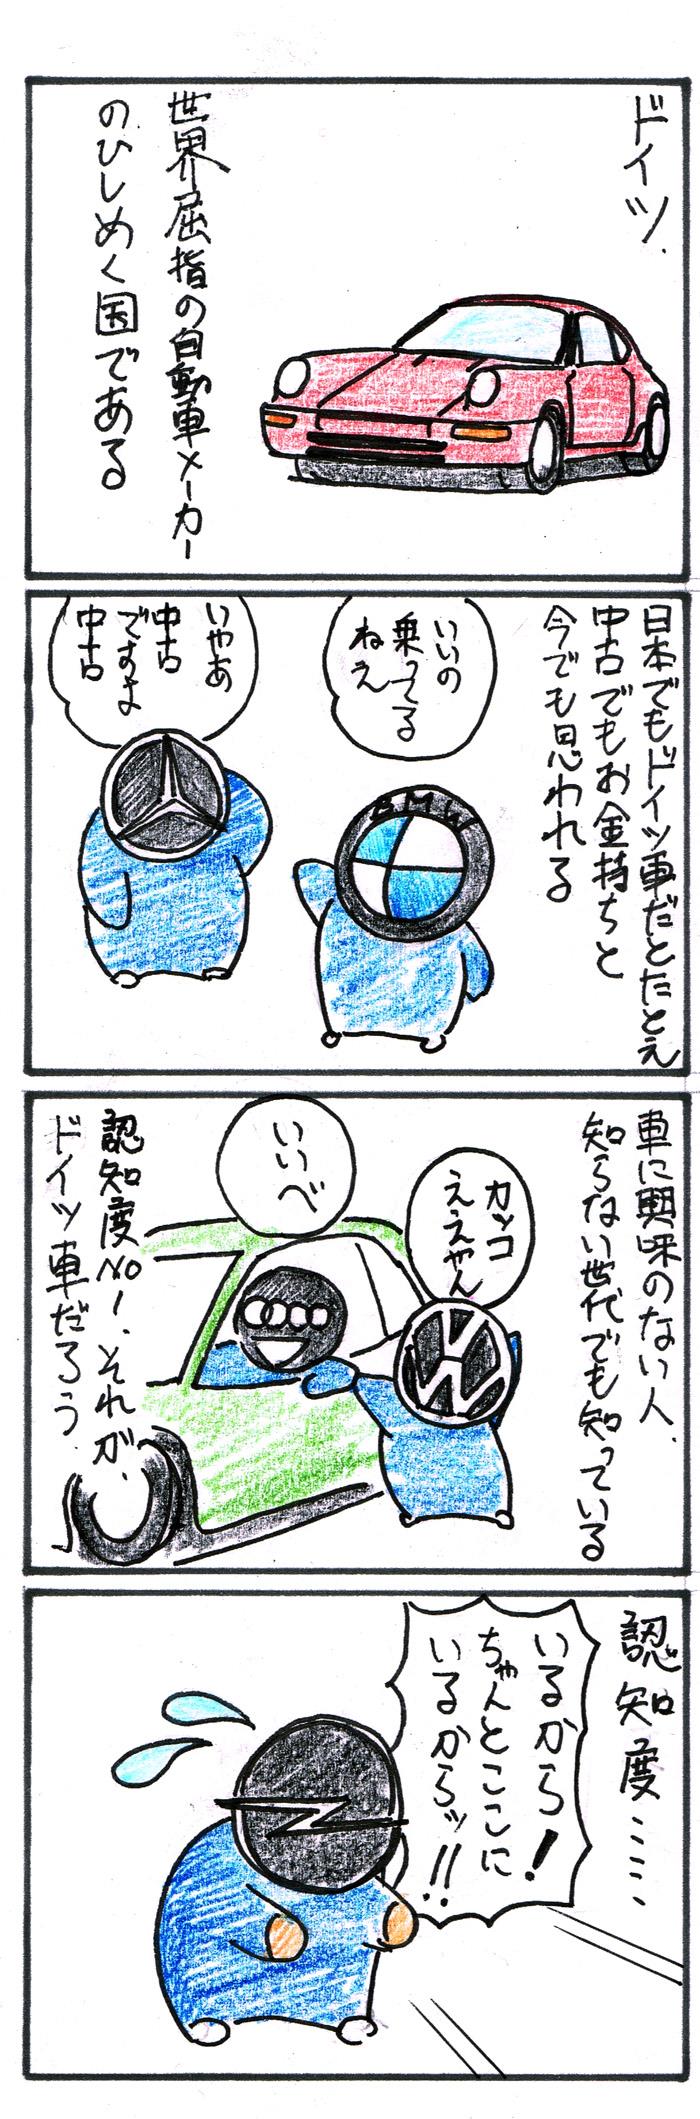 ドイツ.
世界屈指の自動車メーカー
のひしめく国である
日本でもドイツ車だとたとえ
中古でもお金持ちと
今でも思われる
いいの
乗ってる
ねえ
BMW
いやあ
中古
ですよ
中古
車に興味のない人.
知らない世代でも知っている
カッコ
ええやん
いいべ
認知度No1.それが.
ドイツ車だろう.
認知度…..
いるから!
ちゃんとここに
いるからッ!!